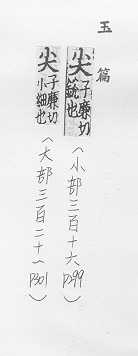 玉篇
尖 子廉切 銳也
(小部三百十六 P299)
尖 子廉切 小細也
(大部三百二十一 P301)